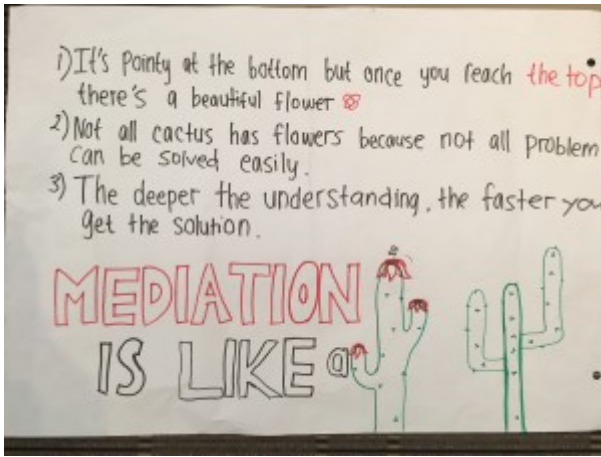 1) It's pointy at the bottom but once you reach the top
there's a beautiful flower
2) Not all cactus has flowers because not all problem
can be solved easily.
3) The deeper the understanding, the faster you
get the solution.
MEDIATION
IS LIKE a